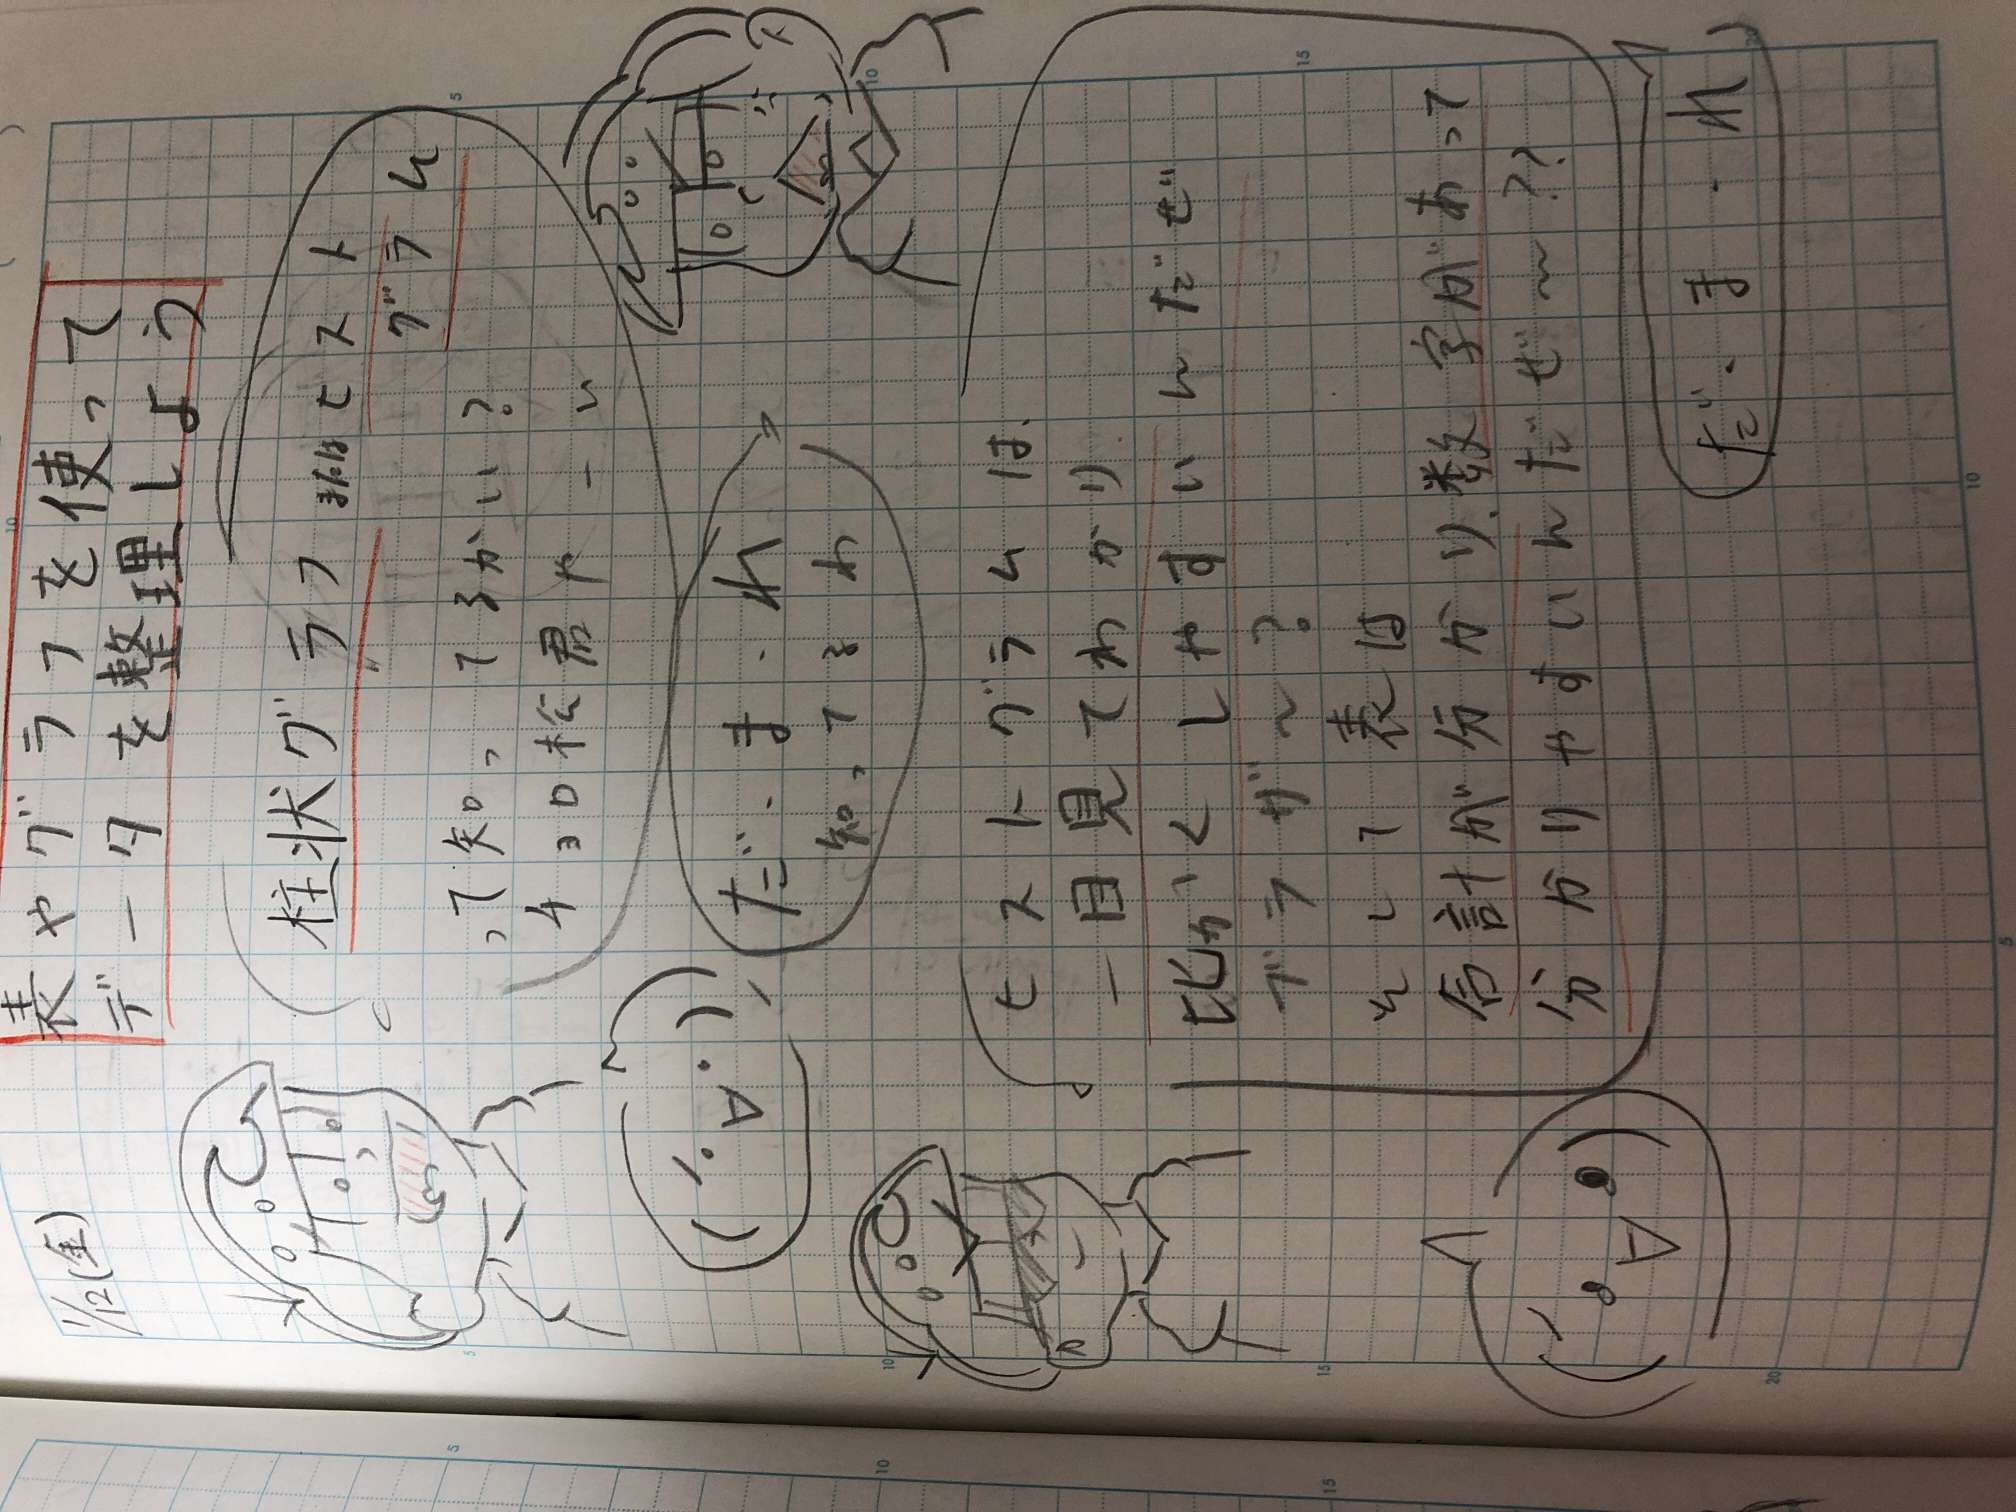 1/12(金)
表やグラフを使って
データを整理しよう
柱状グラフ またはヒスト
グラム
って知ってるかい?
チョロ松君やーい
だ・ま・れ
知ってるわ
ヒストグラムは、
一目見てわかり、
比かくしやすいんだぜ
ブラザ〜?
そして表は
合計が分かり、数字があって
分かりやすいんだぜ〜??
だ・ま・れ